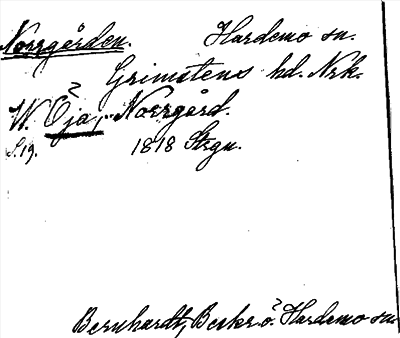 Norrgården. Hardemo sn.
Grimstens hd. Nrk.
W. Öja, Norrgård.
S.19. 1818 Strgn.
Bernhardt, Beskr. ö. Hardemo sn